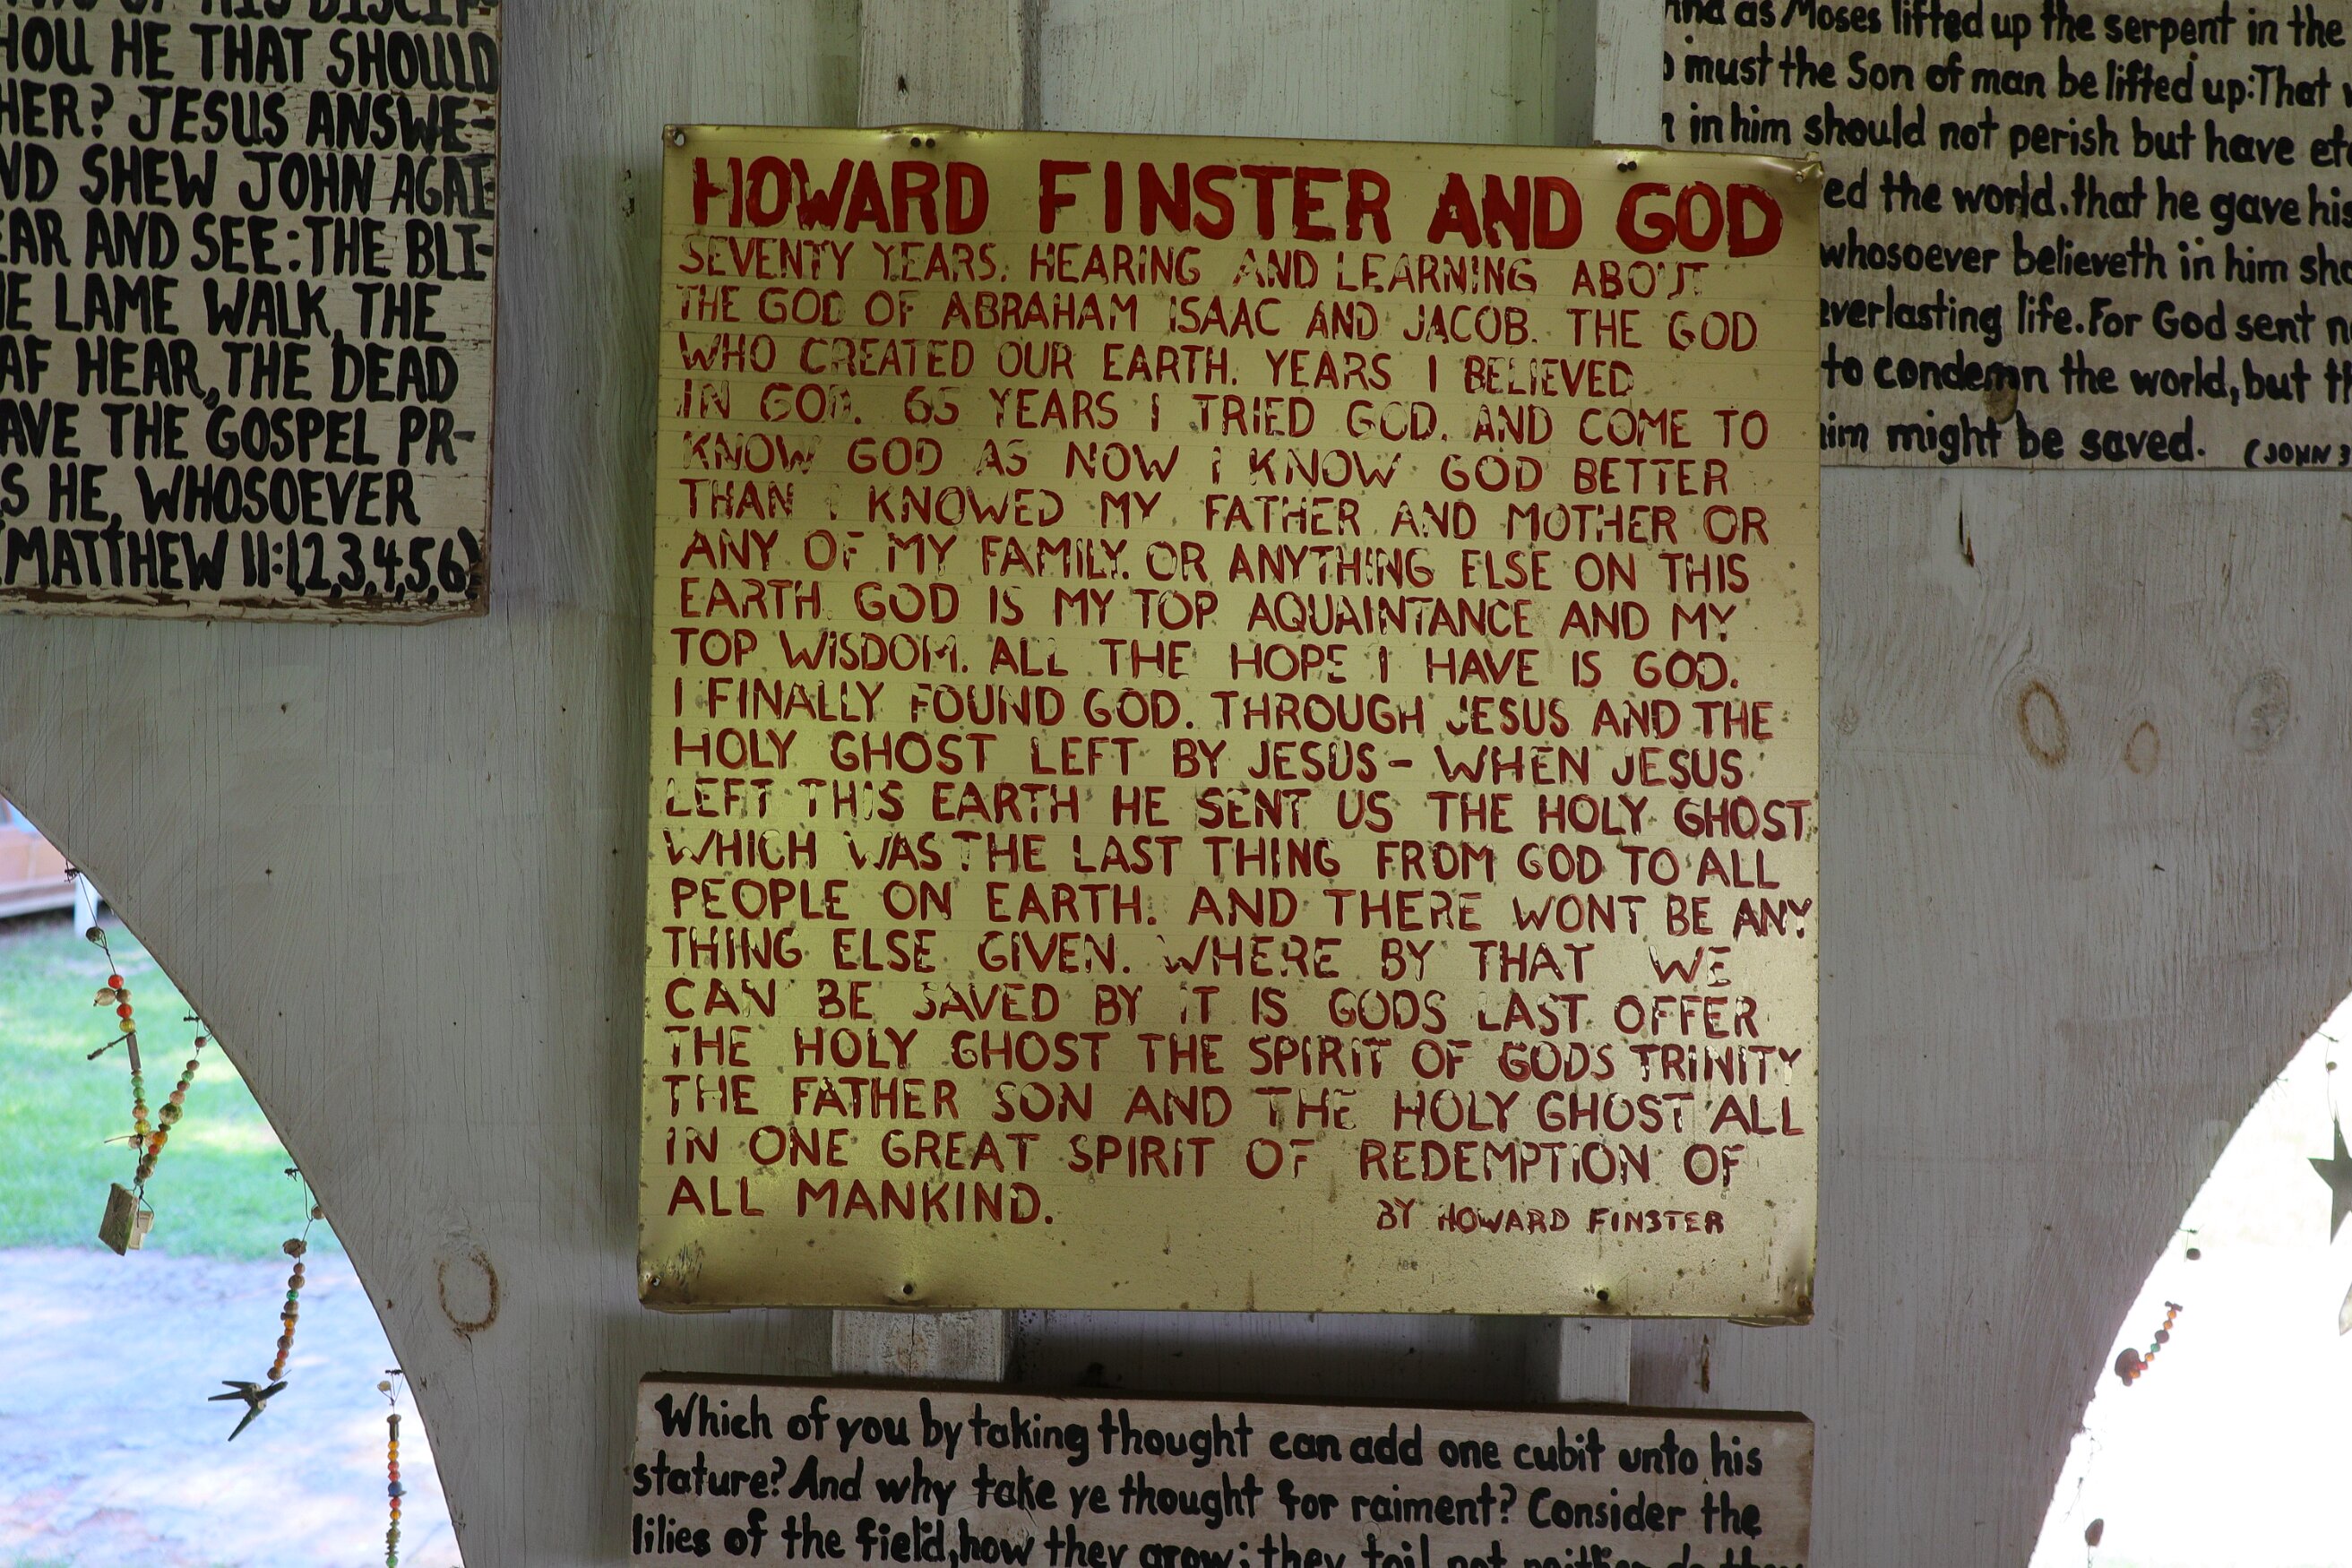 HOU HE THAT SHOULD
HER? JESUS ANSWE-
ND SHEW JOHN AGAI-
EAR AND SEE: THE BLI-
HE LAME WALK, THE
AF HEAR, THE DEAD
AVE THE GOSPEL PR-
S HE, WHOSOEVER
(MATTHEW 11:(2,3,4,5,6)
HOWARD FINSTER AND GOD
SEVENTY YEARS. HEARING AND LEARNING ABOUT
THE GOD OF ABRAHAM ISAAC AND JACOB. THE GOD
WHO CREATED OUR EARTH. YEARS I BELIEVED
IN GOD. 65 YEARS I TRIED GOD. AND COME TO
KNOW GOD AS NOW I KNOW GOD BETTER
THAN I KNOWED MY FATHER AND MOTHER OR
ANY OF MY FAMILY. OR ANYTHING ELSE ON THIS
EARTH. GOD IS MY TOP AQUAINTANCE AND MY
TOP WISDOM. ALL THE HOPE I HAVE IS GOD.
I FINALLY FOUND GOD. THROUGH JESUS AND THE
HOLY GHOST LEFT BY JESUS- WHEN JESUS
LEFT THIS EARTH HE SENT US THE HOLY GHOST
WHICH WAS THE LAST THING FROM GOD TO ALL
PEOPLE ON EARTH. AND THERE WONT BE ANY
THING ELSE GIVEN. WHERE BY THAT WE
CAN BE SAVED BY IT IS GODS LAST OFFER
THE HOLY GHOST THE SPIRIT OF GODS TRINITY
THE FATHER SON AND THE HOLY GHOST ALL
IN ONE GREAT SPIRIT OF REDEMPTION OF
ALL MANKIND.
BY HOWARD FINSTER
and as Moses lifted up the serpent in the
must the Son of man be lifted up: That
in him should not perish but have
ed the world, that he gave
whosoever believeth in him
everlasting life. For God sent
to condemn the world, but
him might be saved. (JOHN 3
Which of you by taking thought can add one cubit unto his
stature? And why take ye thought for raiment? Consider the
lilies of the field, how they grow; they toil not neither do they